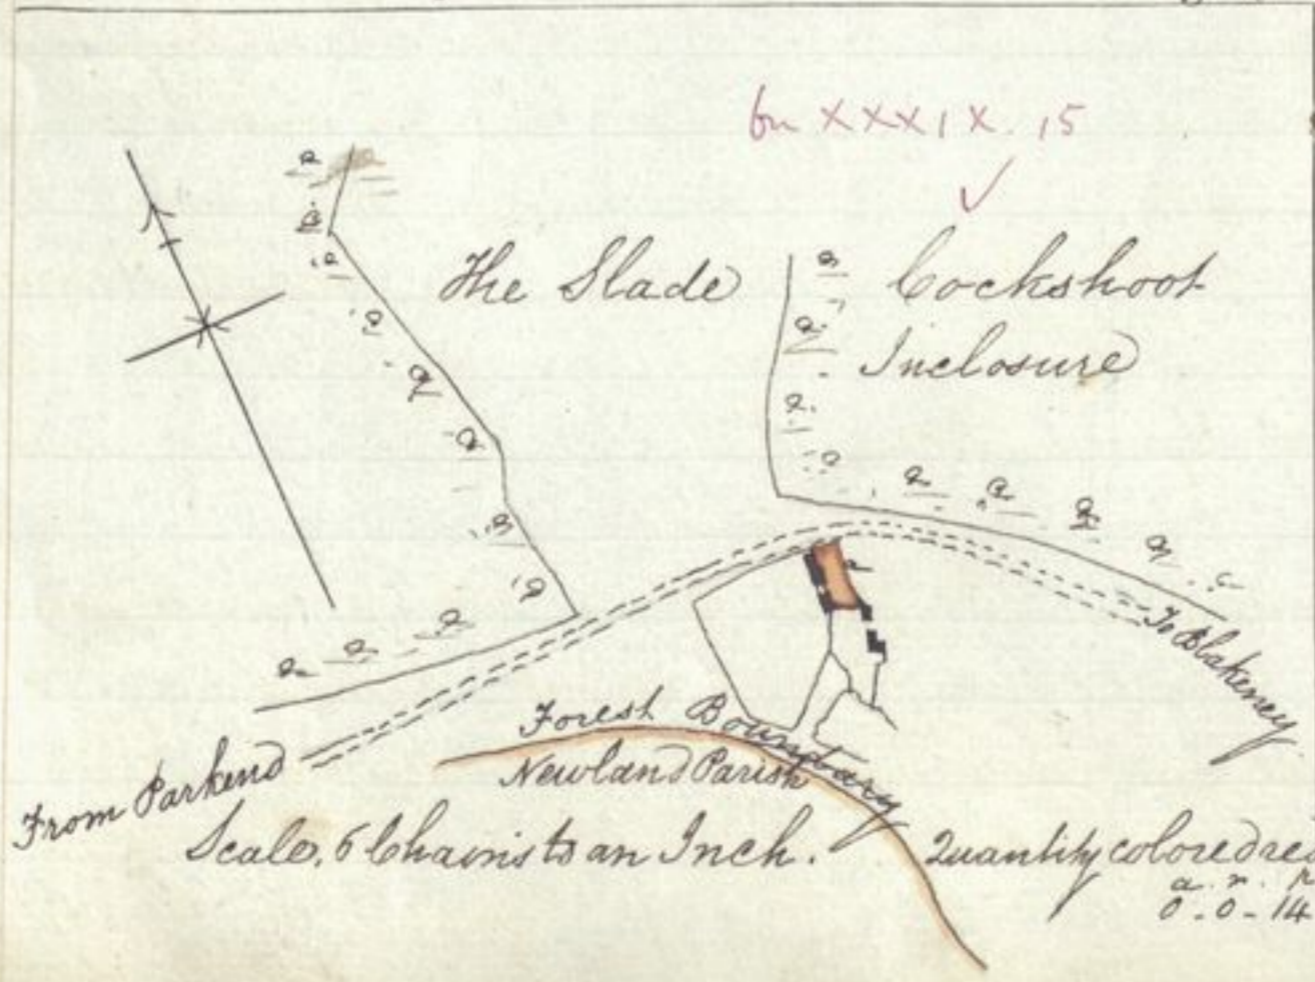 XXXIX. 15
The Slade
Cockshoot
Inclosure
To Blakeney
Forest Boundary
Newland Parish
From Parkend
Scale, 6 Chains to an Inch.
Quantity colored
a. r.
0 - 0 - 14